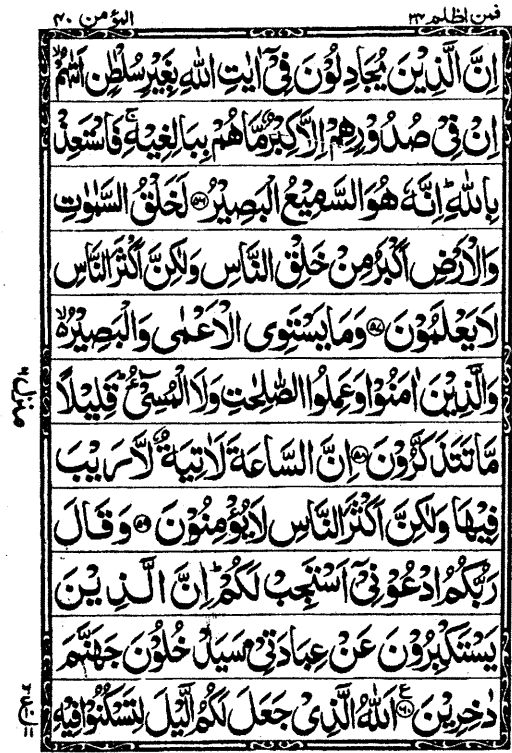 فمن اظلم ٢٤ المؤمن ٤٠
اِنَّ الَّذِيْنَ يُجَادِلُوْنَ فِيْٓ اٰيٰتِ اللّٰهِ بِغَيْرِ سُلْطٰنٍ اَتٰىهُمْ ۙ
اِنْ فِيْ صُدُوْرِهِمْ اِلَّا كِبْرٌ مَّا هُمْ بِبَالِغِيْهِ ۚ فَاسْتَعِذْ
بِاللّٰهِ ؕ اِنَّهٗ هُوَ السَّمِيْعُ الْبَصِيْرُ ﴿۵۶﴾ لَخَلْقُ السَّمٰوٰتِ
وَالْاَرْضِ اَكْبَرُ مِنْ خَلْقِ النَّاسِ وَلٰكِنَّ اَكْثَرَ النَّاسِ
لَا يَعْلَمُوْنَ ﴿۵۷﴾ وَمَا يَسْتَوِي الْاَعْمٰى وَالْبَصِيْرُ ۙ
وَالَّذِيْنَ اٰمَنُوْا وَعَمِلُوا الصّٰلِحٰتِ وَلَا الْمُسِيْٓءُ ؕ قَلِيْلًا
مَّا تَتَذَكَّرُوْنَ ﴿۵۸﴾ اِنَّ السَّاعَةَ لَاٰتِيَةٌ لَّا رَيْبَ
فِيْهَا وَلٰكِنَّ اَكْثَرَ النَّاسِ لَا يُؤْمِنُوْنَ ﴿۵۹﴾ وَقَالَ
رَبُّكُمُ ادْعُوْنِيْٓ اَسْتَجِبْ لَكُمْ ؕ اِنَّ الَّذِيْنَ
يَسْتَكْبِرُوْنَ عَنْ عِبَادَتِيْ سَيَدْخُلُوْنَ جَهَنَّمَ
دٰخِرِيْنَ ﴿۶۰﴾ ع اَللّٰهُ الَّذِيْ جَعَلَ لَكُمُ الَّيْلَ لِتَسْكُنُوْا فِيْهِ
منزل ٦